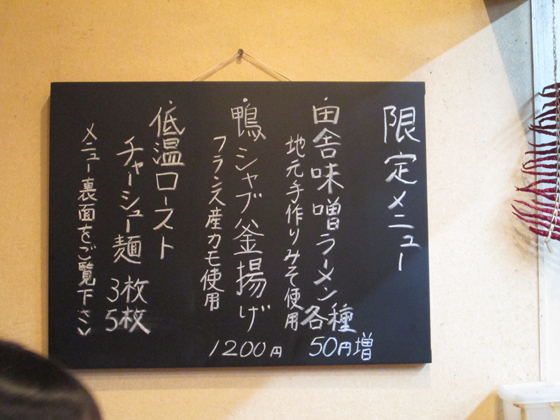 限定メニュー
・田舎味噌ラーメン各種
50円増
地元手作りみそ使用
・鴨シャブ釜揚げ
1200円
フランス産カモ使用
・低温ロースト
チャーシュー麺 3枚
5枚
メニュー裏面をご覧下さい